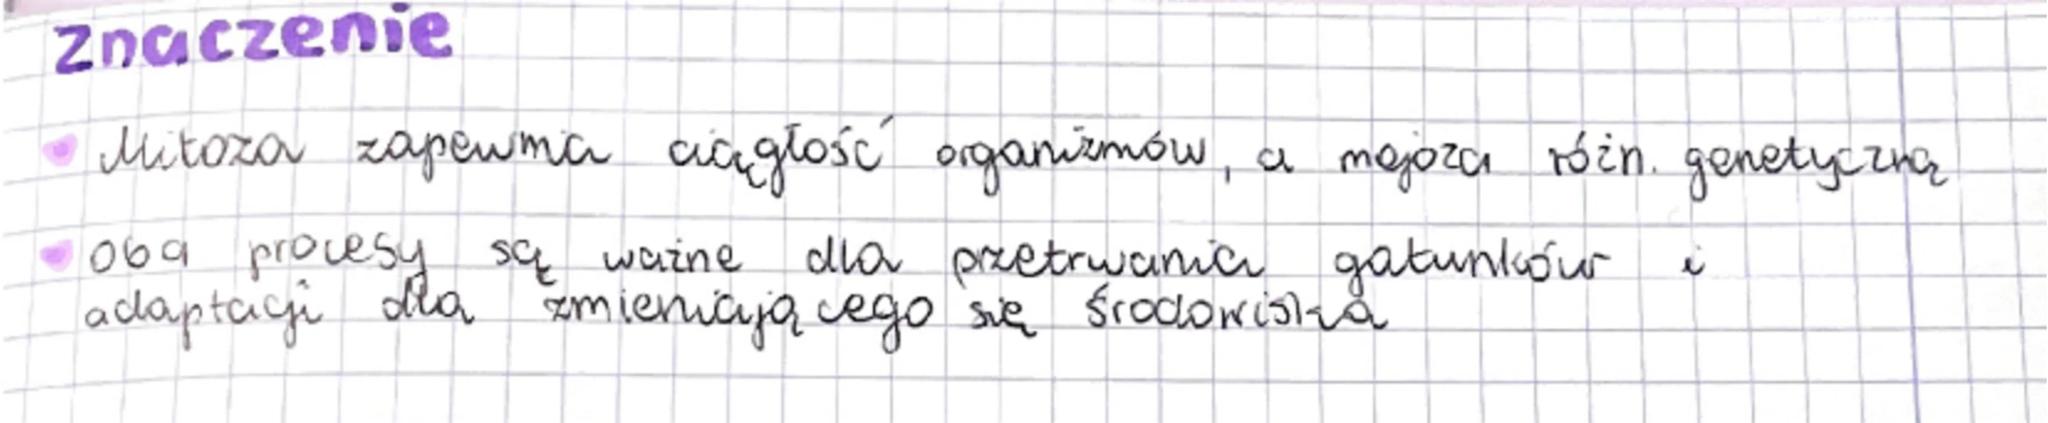 Znaczenie
Mitoza zapewnia ciągłość organizmów, a mejoza różn. genetyczną
oba procesy są ważne dla przetrwania gatunków i
adaptacji dla zmieniającego się środowiska